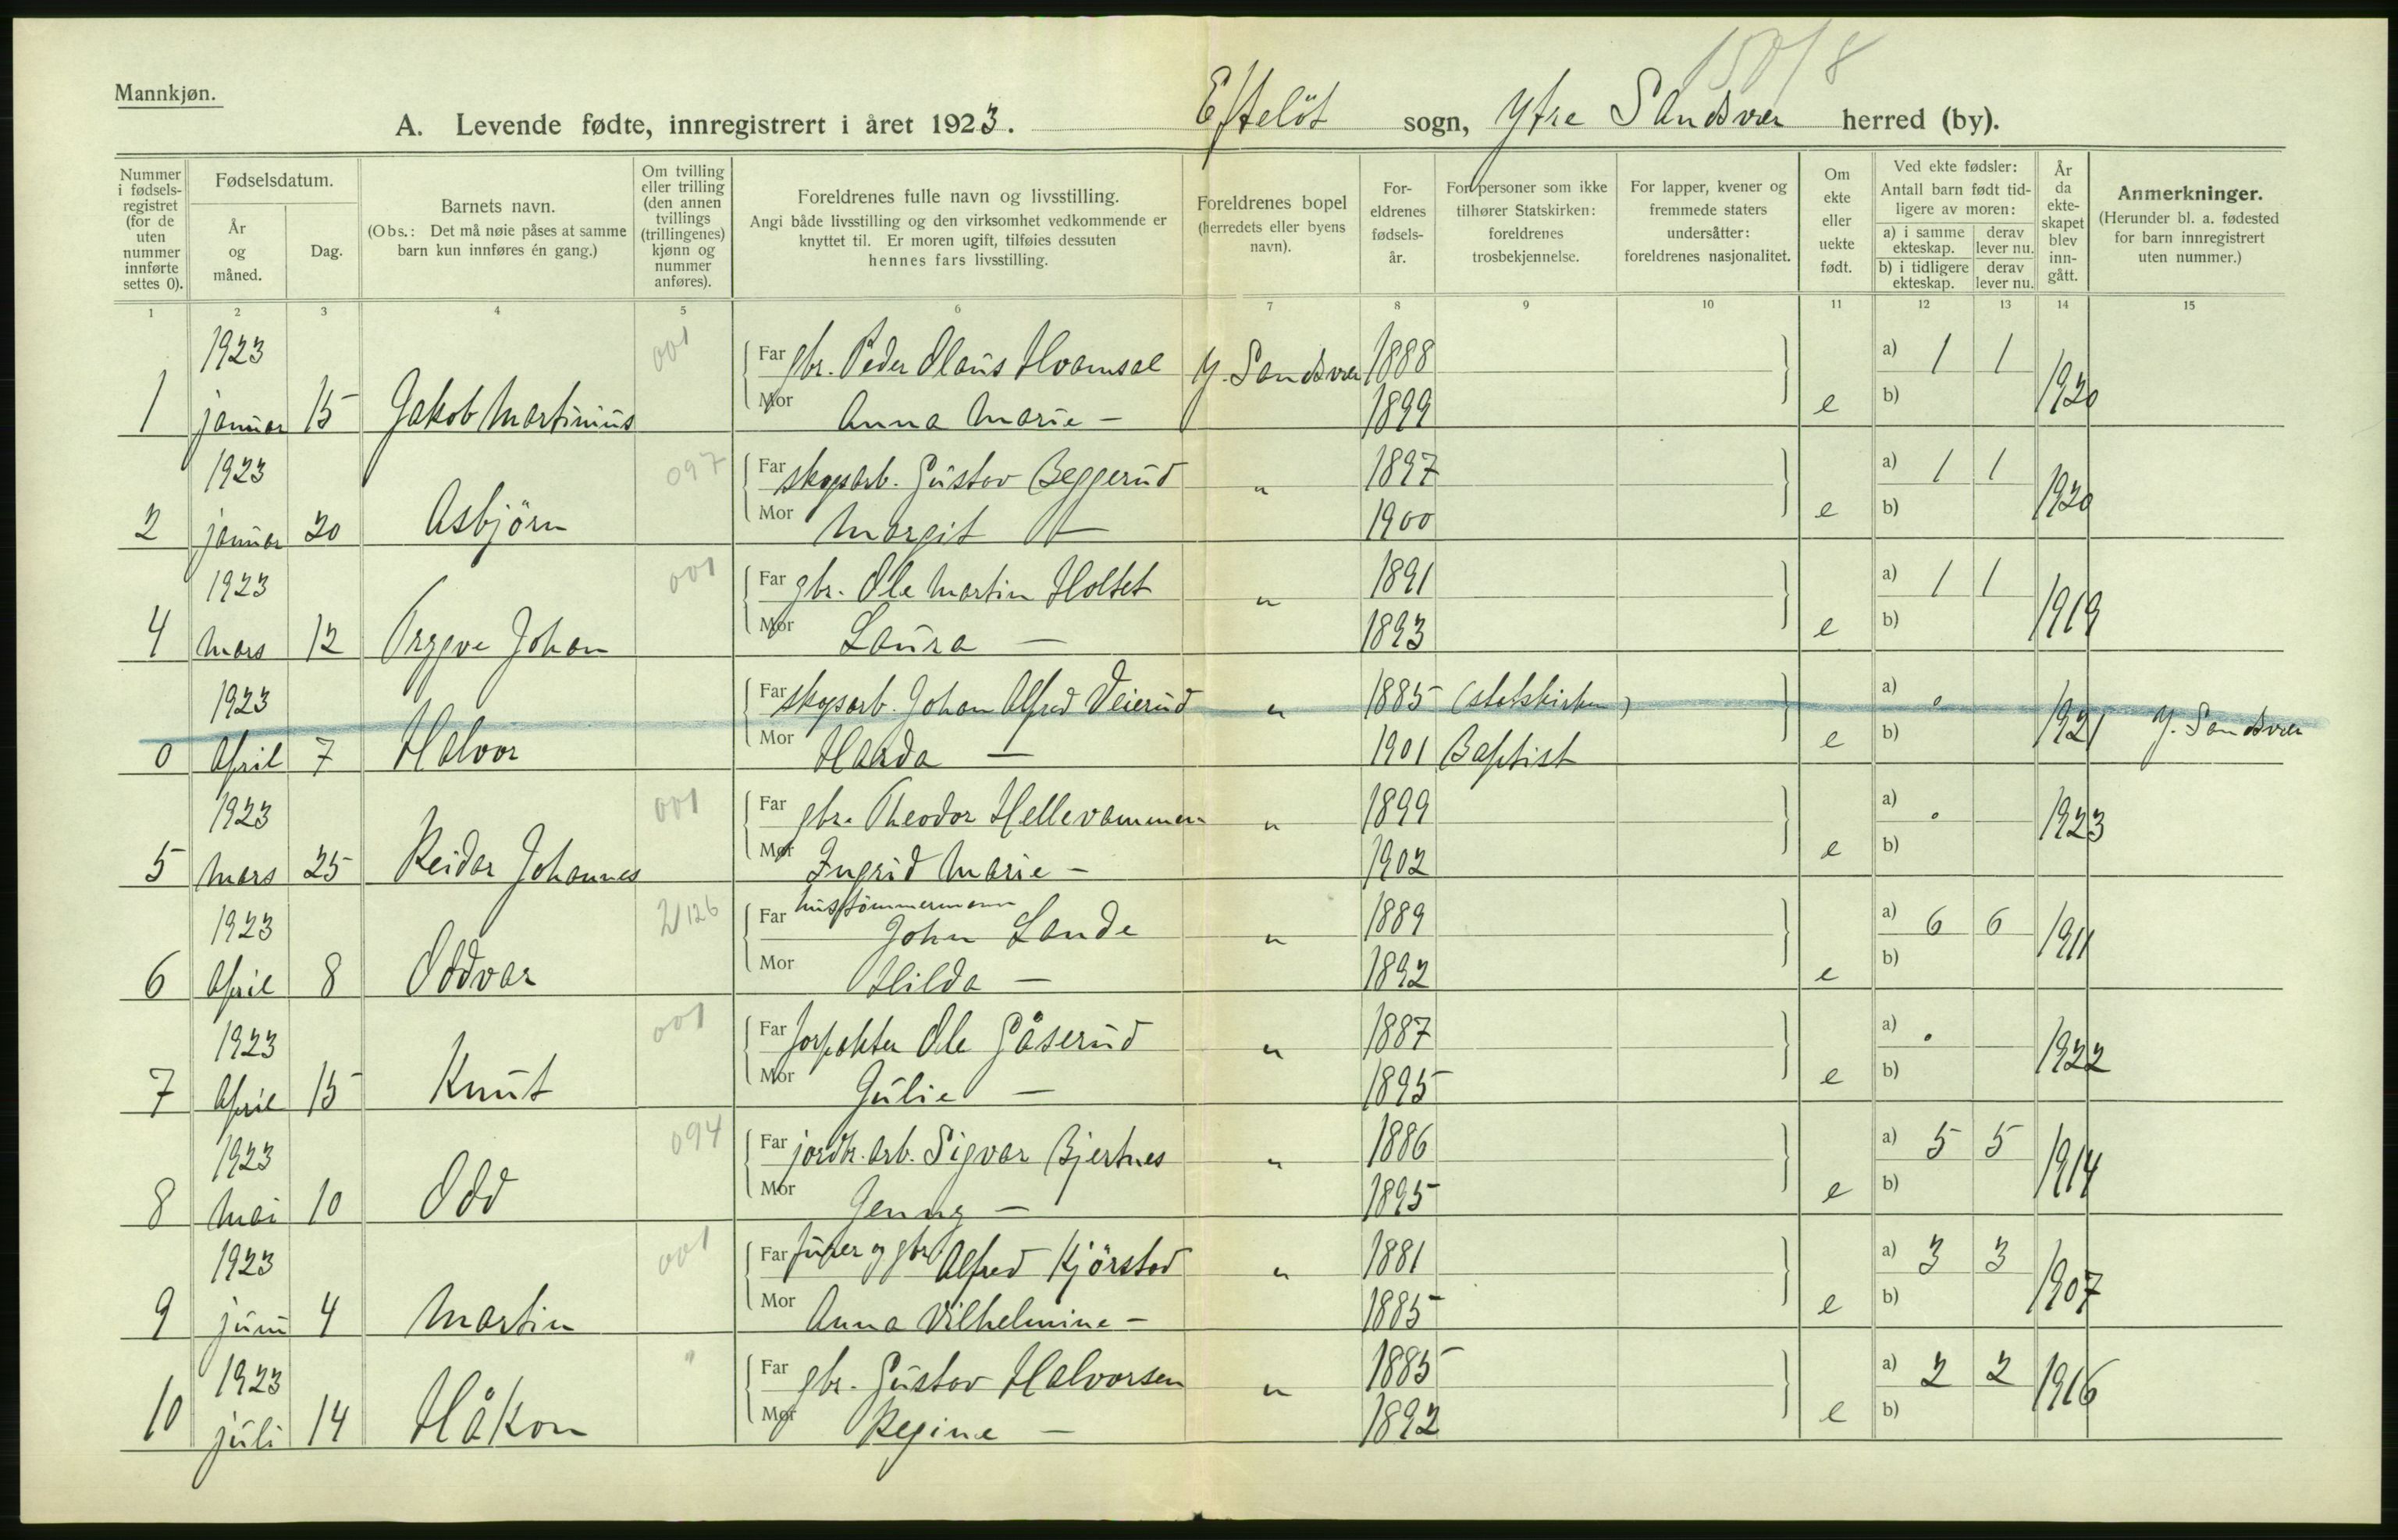 150/8
Mannkjøn.
A. Levende fødte, innregistrert i året 1923. Efteløt sogn, Ytre Sandsvær herred (by).
Nummer i fødselsregistret (for de uten nummer innførte settes 0).
Fødselsdatum.
År og måned.
Dag.
Barnets navn.
(Obs.: Det må nøie påses at samme barn kun innføres én gang.)
Om tvilling eller trilling (den annen tvillings (trillingenes) kjønn og nummer anføres).
Foreldrenes fulle navn og livsstilling.
Angi både livsstilling og den virksomhet vedkommende er knyttet til. Er moren ugift, tilføies dessuten hennes fars livsstilling.
Foreldrenes bopel (herredets eller byens navn).
Foreldrenes fødselsår.
For personer som ikke tilhører Statskirken: foreldrenes trosbekjennelse.
For lapper, kvener og fremmede staters undersåtter: foreldrenes nasjonalitet.
Om ekte eller uekte født.
Ved ekte fødsler: Antall barn født tidligere av moren:
a) i samme ekteskap. derav lever nu.
b) i tidligere ekteskap. derav lever nu.
År da ekteskapet blev inngått.
Anmerkninger.
(Herunder bl. a. fødested for barn innregistrert uten nummer.)
1 2 3 4 5 6 7 8 9 10 11 12 13 14 15
1923 001 Far gbr. Peder Olaus Hvamsal Y. Sandsvær 1888 a) 1 1
1 januar 15 Jakob Martinius Mor Anna Marie — 1899 e b) 1920
1923 097 Far skogsarb. Gustav Beggerud " 1897 a) 1 1
2 januar 20 Asbjörn Mor Margit — 1900 e b) 1920
1923 001 Far gbr. Ole Martin Holtet " 1891 a) 1 1
4 mars 12 Trygve Johan Mor Laura — 1893 e b) 1919
1923 Far skogsarb. Johan Alfred Veierud " 1885 (statskirken) a) 0
0 April 7 Halvor Mor Harda — 1901 Baptist e b) 1921 Y. Sandsvær
1923 001 Far gbr. Theodor Hellevammen " 1899 a) 0 —
5 mars 25 Reidar Johannes Mor Ingrid Marie — 1902 e b) 1923
1923 2/126 Far hustömmermann John Lande " 1889 a) 6 6
6 April 8 Oddvar Mor Hilda — 1892 e b) 1911
1923 001 Far forpakter Ole Gåserud " 1887 a) 0 —
7 April 15 Knut Mor Julie — 1895 e b) 1922
1923 094 Far jordbr. arb. Sigvar Bjertnes " 1886 a) 5 5
8 mai 10 Odd Mor Jenny — 1895 e b) 1914
1923 001 Far og gbr. Alfred Kjörstad " 1881 a) 3 3
9 juni 4 Martin Mor Anna Vilhelmine — 1885 e b) 1907
1923 " Far gbr. Gustav Halvorsen " 1885 a) 2 2
10 juli 14 Håkon Mor Regine — 1892 e b) 1916